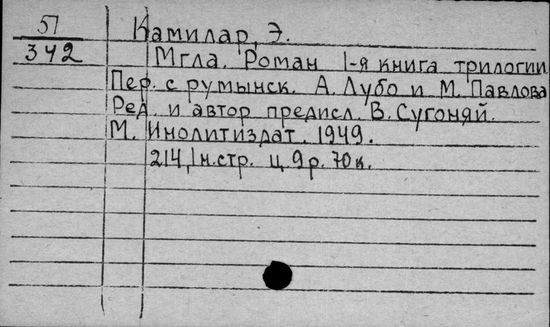 51
342
Камилар, Э.
Мгла. Роман 1-я книга трилогии
Пер. с румынск. А. Лубо и М. Павлова
Ред. и автор предисл. В. Сугоняй.
М. Инолитиздат. 1949.
214, 1 н. стр. ц. 9 р. 70 к.